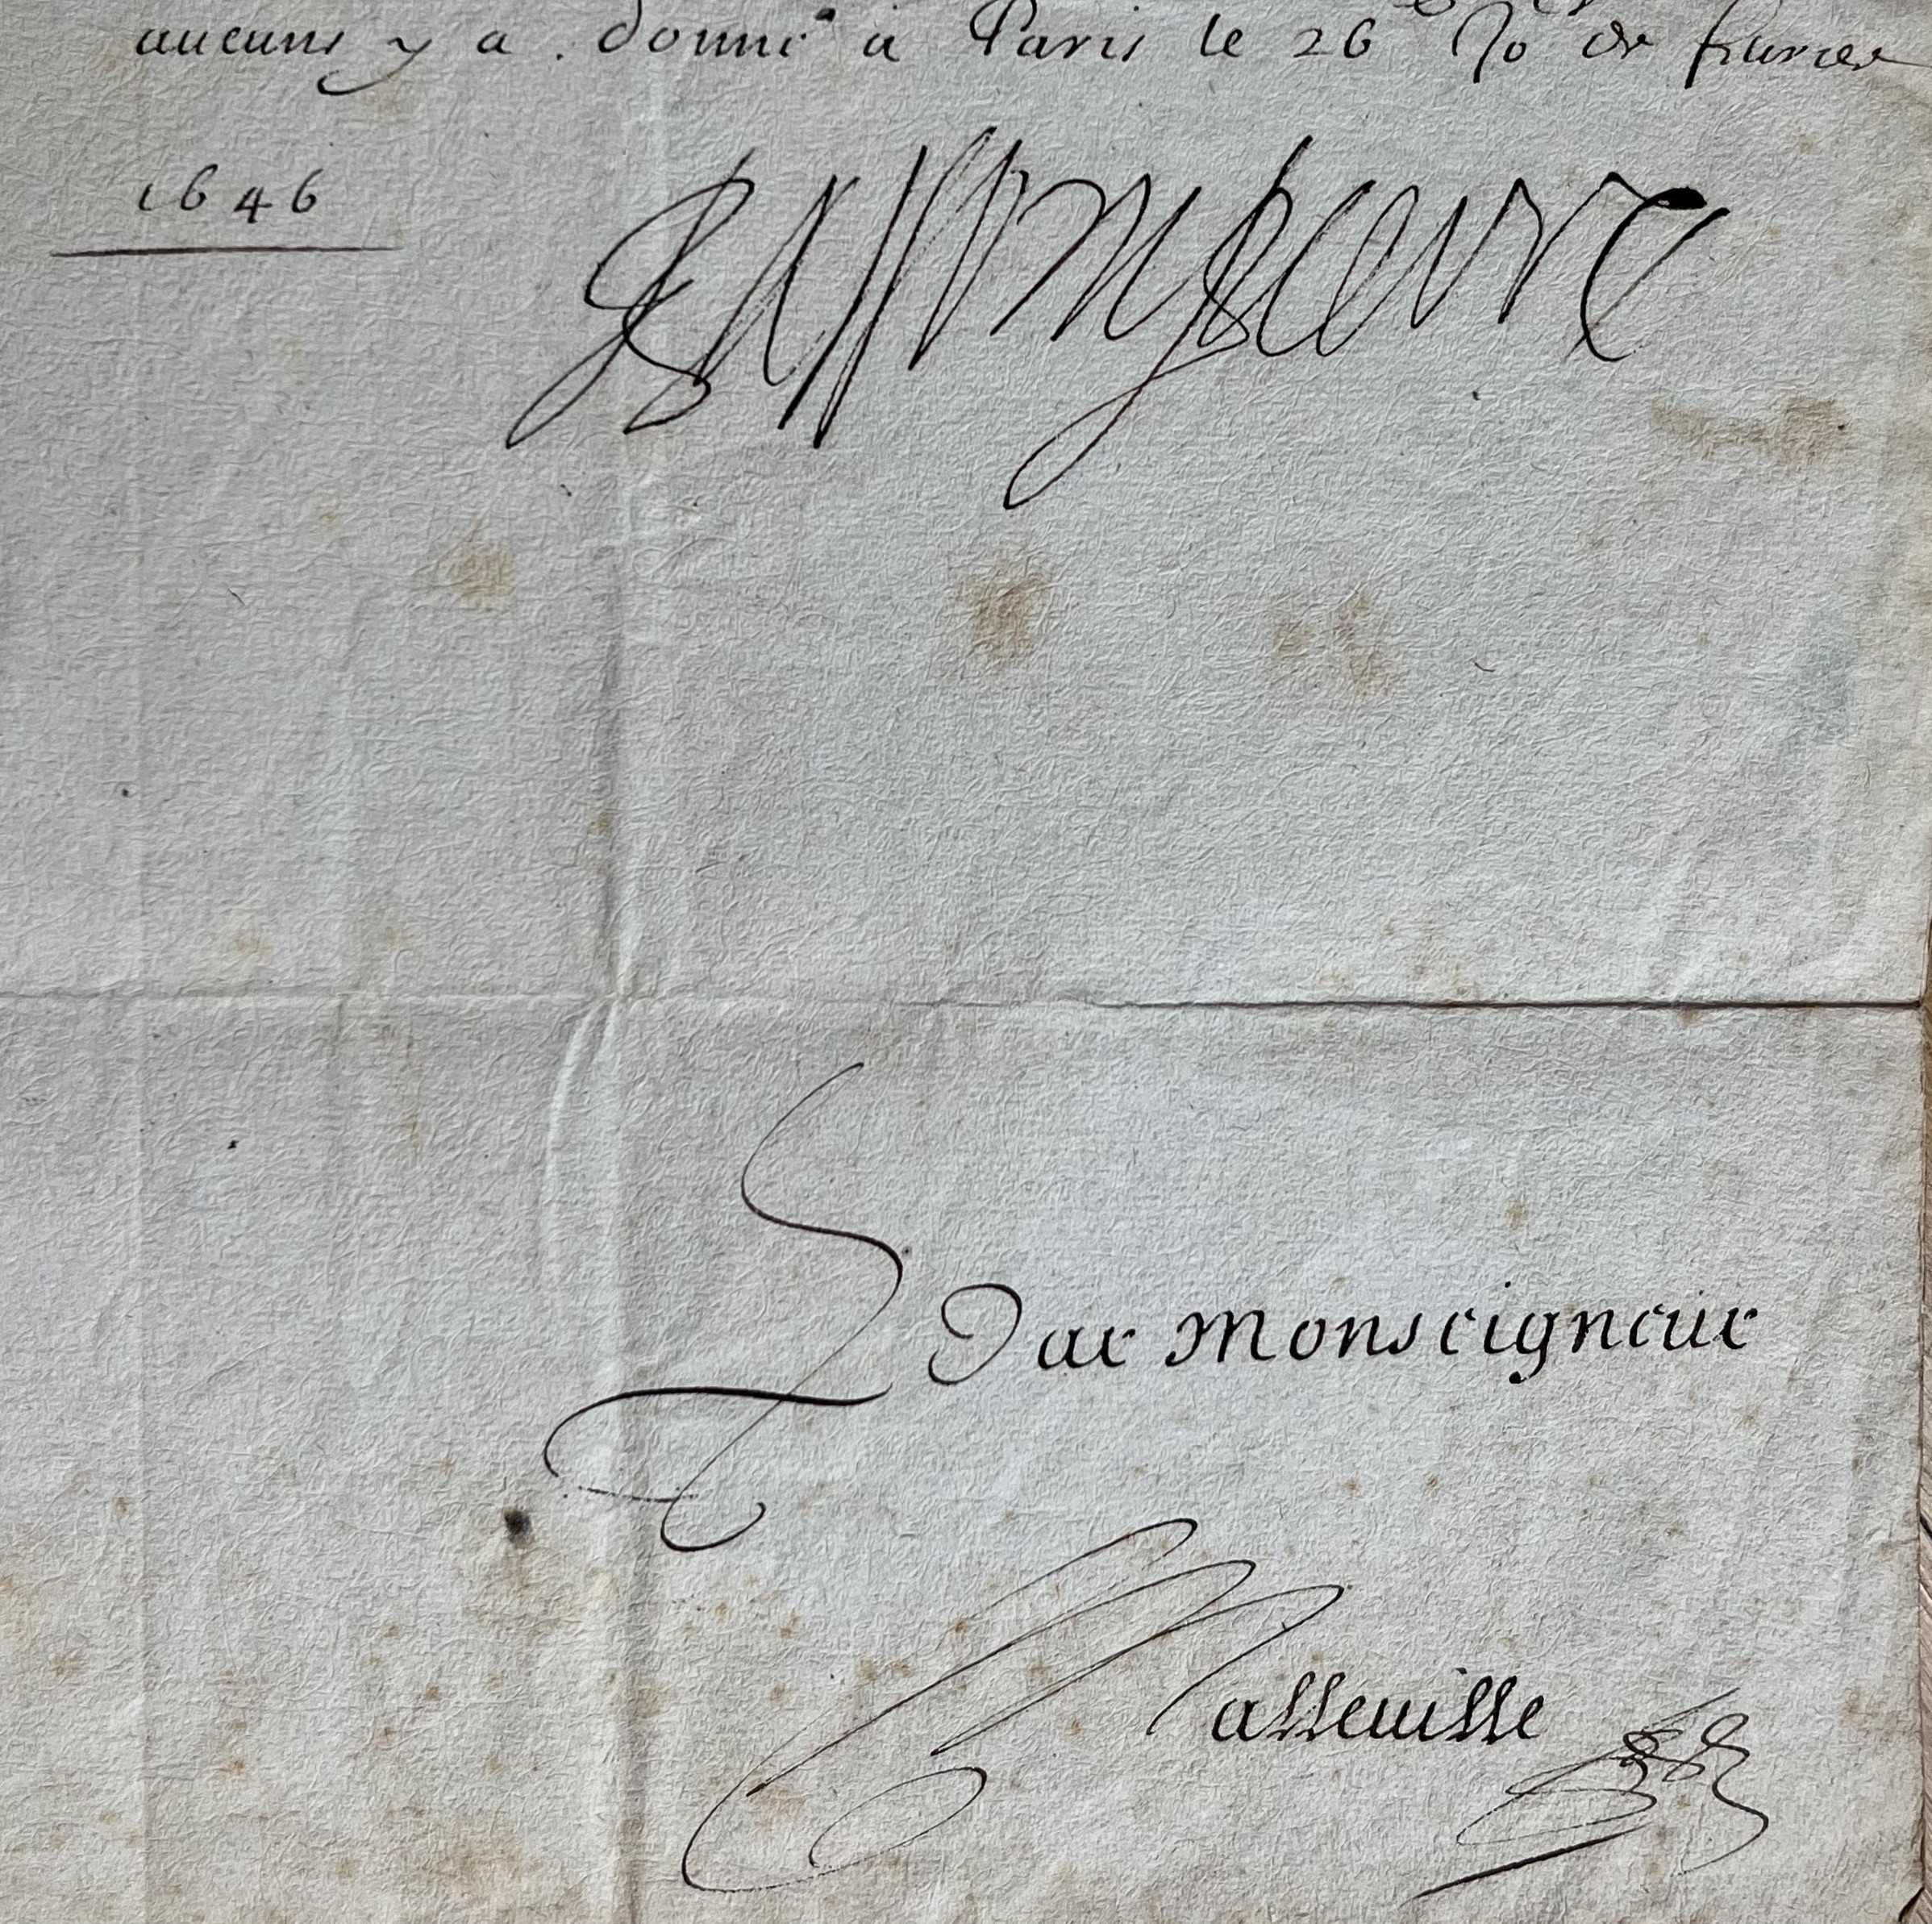 aucuns y a . donné a Paris le 26e Jo de feurier
1646
Bassompierre
Par Monseigneur
Malleuille